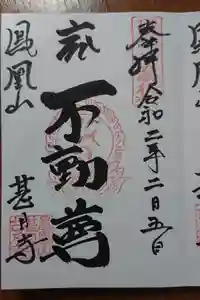 奉拝
令和二年二月五日
不動尊
鳳凰山
甚目寺